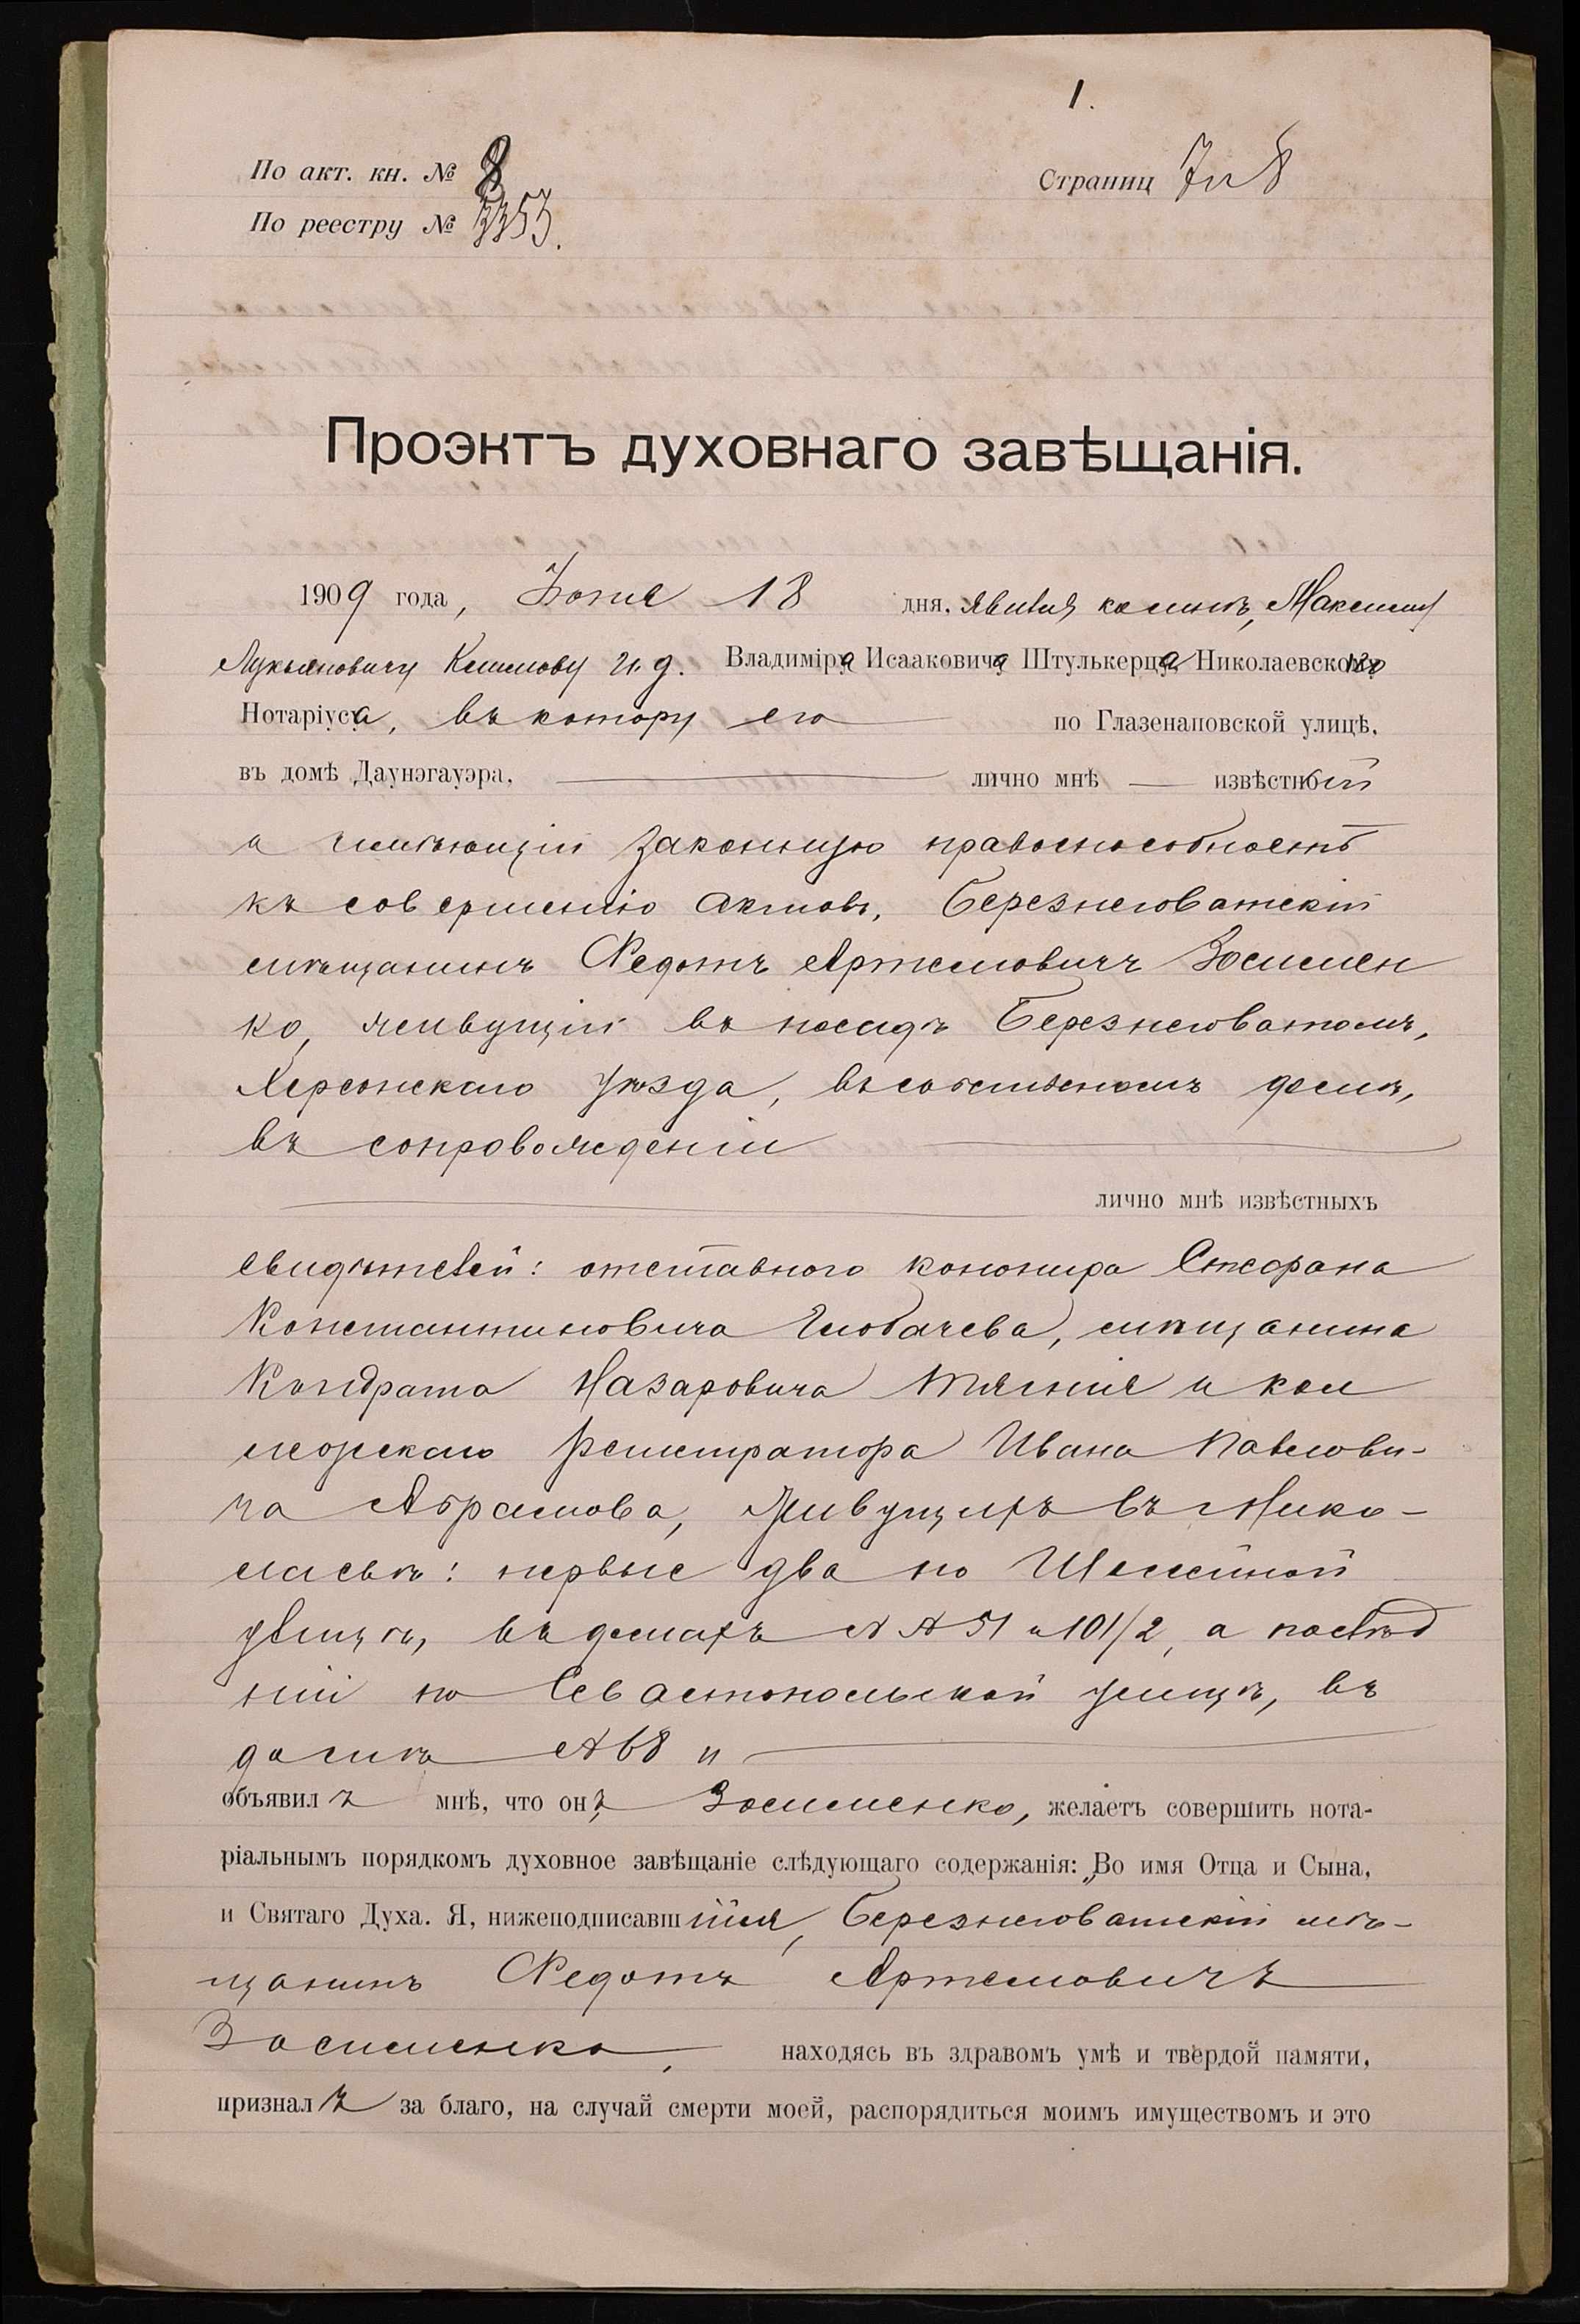 1.
По акт. кн. № 8
Страниц 7 и 8
По реестру № 3353.
Проэктъ духовнаго завѣщанія.
1909 года, Іюня 18 дня, явился ко мнѣ, Максиму
Лукьяновичу Климову и. д. Владиміра Исааковича Штулькерца Николаевскаго
Нотаріуса, въ контору его по Глазенаповской улицѣ,
въ домѣ Даунэгауэра, лично мнѣ извѣстный
и имѣющій законную правоспособность
къ совершенію актовъ, Березнеговатскій
мѣщанинъ Федотъ Артемовичъ Зосимен
ко, живущій въ посадѣ Березнеговатомъ,
Херсонскаго уѣзда, въ собственномъ домѣ,
въ сопровожденіи
лично мнѣ извѣстныхъ
свидѣтелей: отставного канонира Стефана
Константиновича Глобачева, мѣщанина
Кондрата Назаровича и кол
лежскаго регистратора Ивана Павлови-
ча Абрамова, живущихъ въ г. Нико-
лаевѣ: первые два по
улицѣ, въ домахъ № № 51 и 101/2, а послѣд
ній по Севастопольской улицѣ, въ
домѣ № 68 и
объявилъ мнѣ, что онъ, Зосименко, желаетъ совершить нота-
ріальнымъ порядкомъ духовное завѣщаніе слѣдующаго содержанія: „Во имя Отца и Сына,
и Святаго Духа. Я, нижеподписавшійся, Березнеговатскій мѣ-
щанинъ Федотъ Артемовичъ
Зосименко, находясь въ здравомъ умѣ и твердой памяти,
призналъ за благо, на случай смерти моей, распорядиться моимъ имуществомъ и это